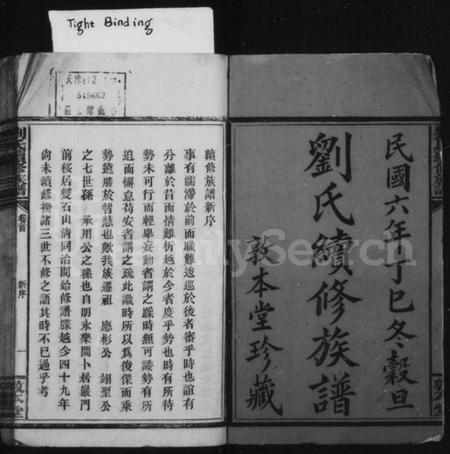 Tight Binding
549603
民國六年丁巳冬穀旦
劉氏續修族譜
敦本堂珍藏
續修族譜新序
事有濡滯於前而職難逡巡於後者審乎時也誼有
分離於昔而情難析越於今者度乎勢也時有所待
勢未可行而輕舉妄動者謂之躁時無可諉勢有所
迫而懈怠苟安者謂之疏此識時所以為俊傑而乘
勢遠勝於智慧也歟我族遷祖 應彬公 翊聖公
之七世孫 承用公之孫也自明永樂間卜居嚴門
前移居雙石山清同治間始修譜牒越今四十九年
尚未續修揆諸三世不修之語其時不已過乎考
卷首
新序
一
FamilySearch